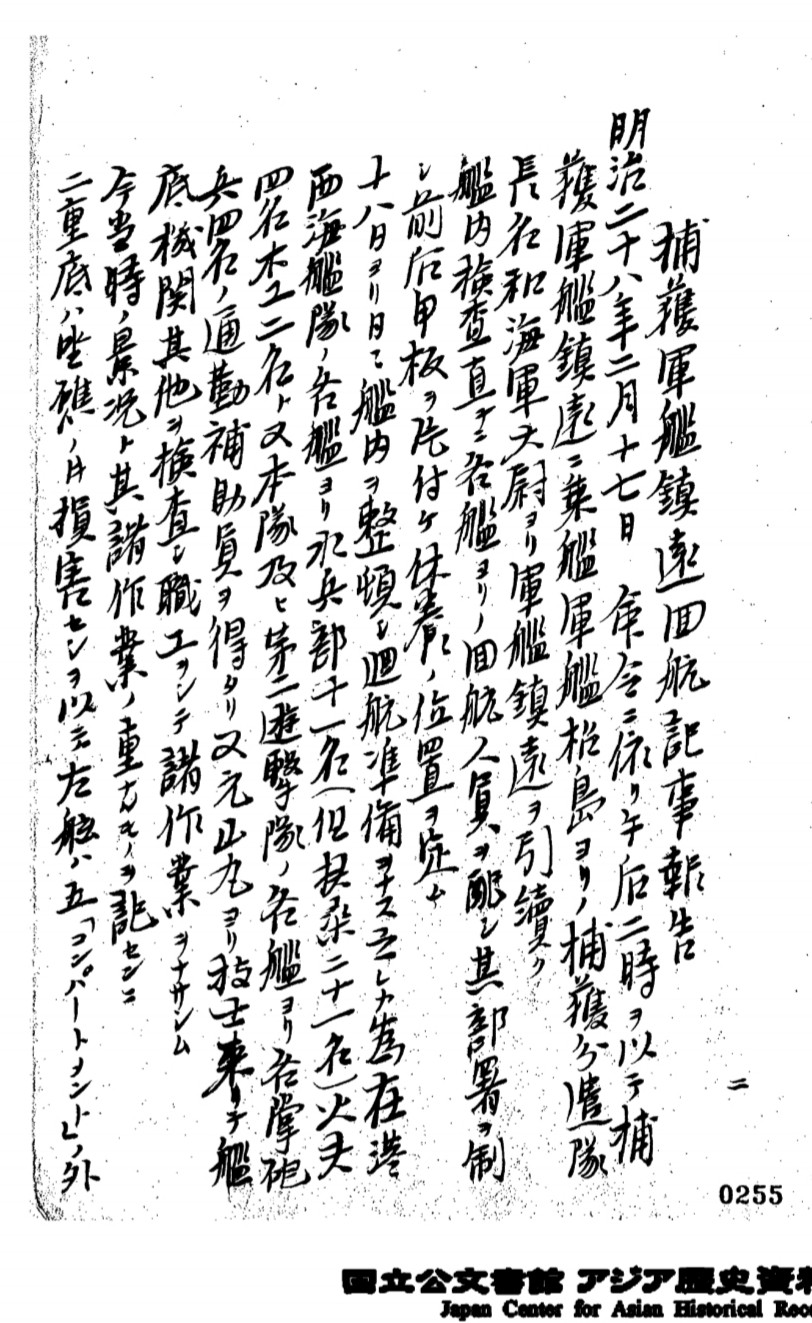 捕獲軍艦鎮遠回航記事報告
明治二十八年二月十七日 命令ニ依リ午后二時ヲ以テ捕
獲軍艦鎮遠ニ乗艦軍艦松島ヨリノ捕獲分遣隊
長名和海軍大尉ヨリ軍艦鎮遠ヲ引續ク
艦内檢査直チニ各艦ヨリノ回航人員ヲ配シ其部署ヲ制
シ前后甲板ヲ片付ケ休養ノ位置ヲ定ム
十八日ヨリ日々艦内ヲ整頓シ廻航準備ヲナス之レカ為在港
西海艦隊ノ各艦ヨリ水兵部十一名(但扶桑二十一名)火夫
四名木工二名ト又本隊及ヒ第二遊撃隊ノ各艦ヨリ各掌砲
兵四名ノ通勤補助員ヲ得タリ又元山丸ヨリ技士来リテ艦
底機関其他ヲ検査シ職工ヲシテ諸作業ヲナサシム
今当時ノ景況ト其諸作業ノ重ナルモノヲ記センニ
二重底ハ坐礁ノ片損害セシヲ以テ左舷ハ五「コンパートメント」ノ外
二
0255
国立公文書館 アジア歴史資料
Japan Center for Asian Historical Reco